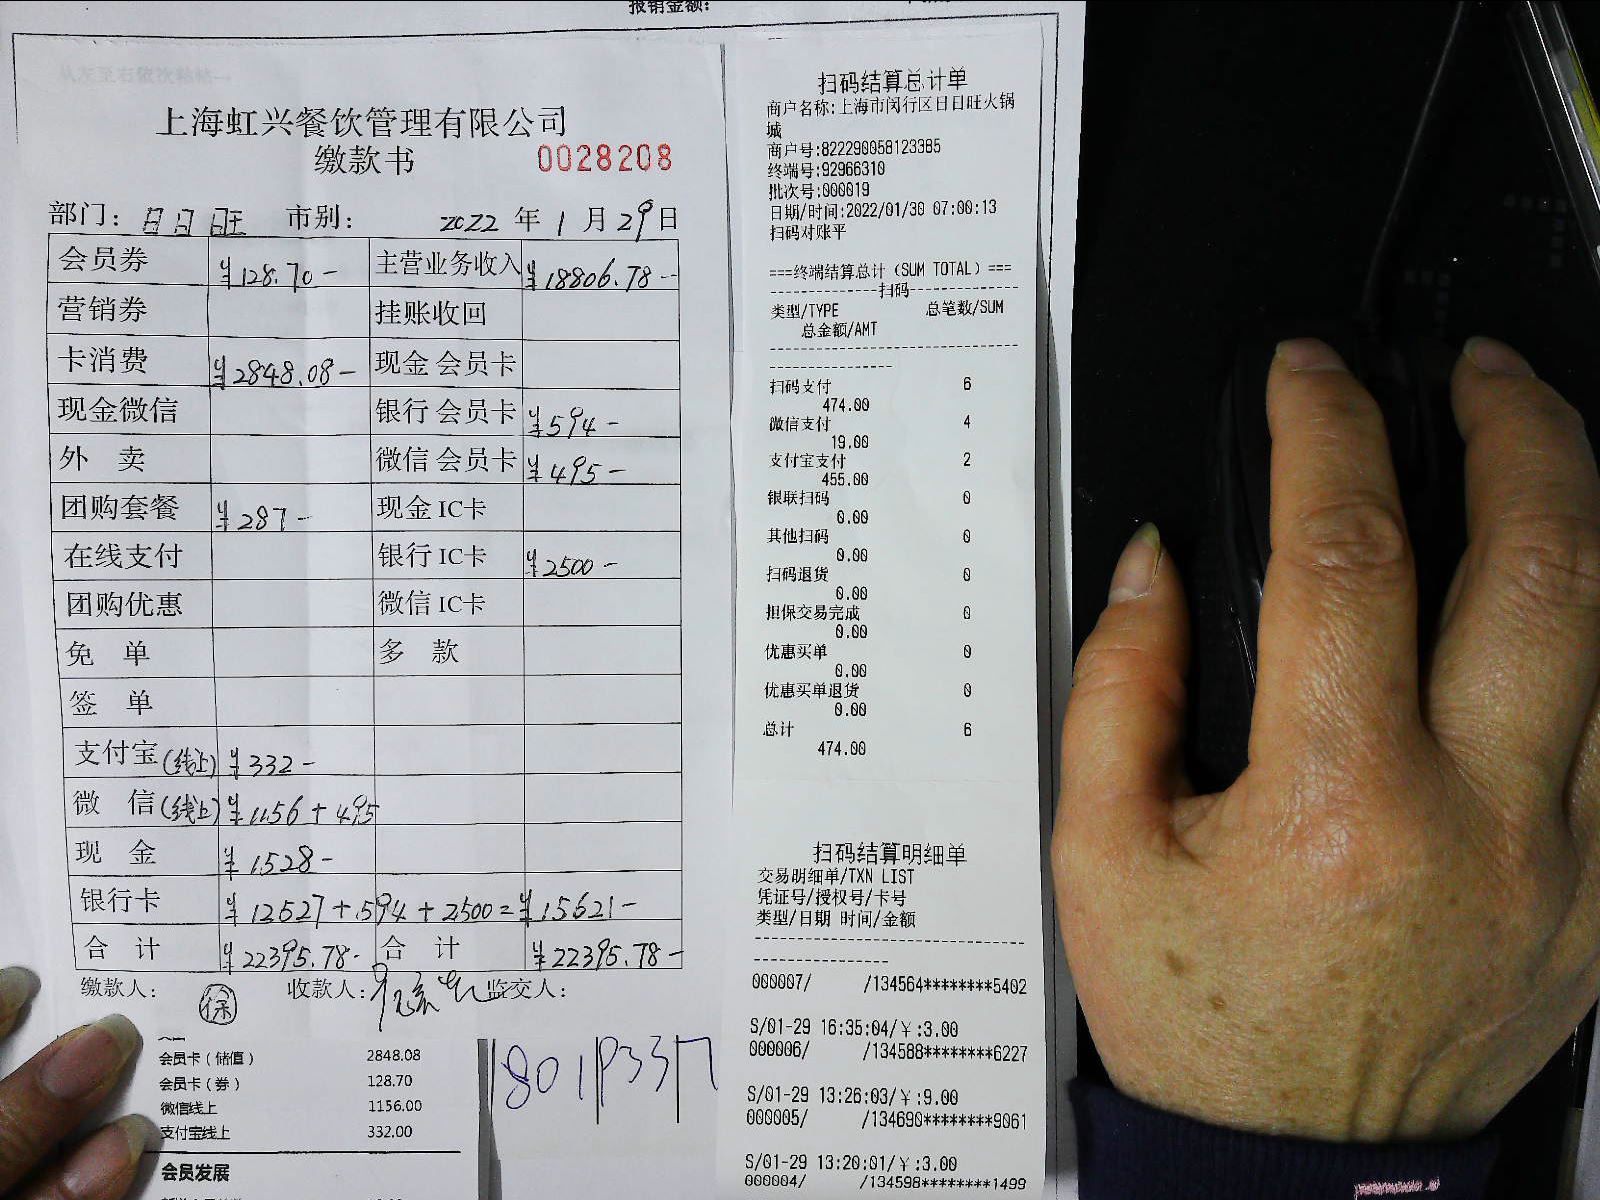 报销金额:
从左至右依次粘帖→
上海虹兴餐饮管理有限公司
缴款书 0028208
部门: 日日旺 市别: 2022 年 1 月 29 日
会员券 ¥128.70- 主营业务收入 ¥18806.78-
营销券 挂账收回
卡消费 ¥2848.08- 现金 会员卡
现金微信 银行 会员卡 ¥594-
外 卖 微信 会员卡 ¥495-
团购套餐 ¥287- 现金 IC卡
在线支付 银行 IC卡 ¥2500-
团购优惠 微信 IC卡
免 单 多 款
签 单
支付宝(线上) ¥332-
微 信(线上) ¥1156+495
现 金 ¥1528-
银行卡 ¥12527+594+2500=¥15621-
合 计 ¥22395.78- 合 计 ¥22395.78-
缴款人: 徐 收款人: 监交人:
会员卡(储值) 2848.08
会员卡(券) 128.70
微信线上 1156.00
支付宝线上 332.00
会员发展
扫码结算总计单
商户名称:上海市闵行区日日旺火锅
城
商户号:822290058123385
终端号:92966310
批次号:000019
日期/时间:2022/01/30 07:00:13
扫码对账平
===终端结算总计(SUM TOTAL)===
---------------扫码---------------
类型/TYPE 总笔数/SUM
总金额/AMT
扫码支付 6
474.00
微信支付 4
19.00
支付宝支付 2
455.00
银联扫码 0
0.00
其他扫码 0
0.00
扫码退货 0
0.00
担保交易完成 0
0.00
优惠买单 0
0.00
优惠买单退货 0
0.00
总计 6
474.00
扫码结算明细单
交易明细单/TXN LIST
凭证号/授权号/卡号
类型/日期 时间/金额
000007/ /134564********5402
S/01-29 16:35:04/¥:3.00
000006/ /134588********6227
S/01-29 13:26:03/¥:9.00
000005/ /134690********9061
S/01-29 13:20:01/¥:3.00
000004/ /134598********1499